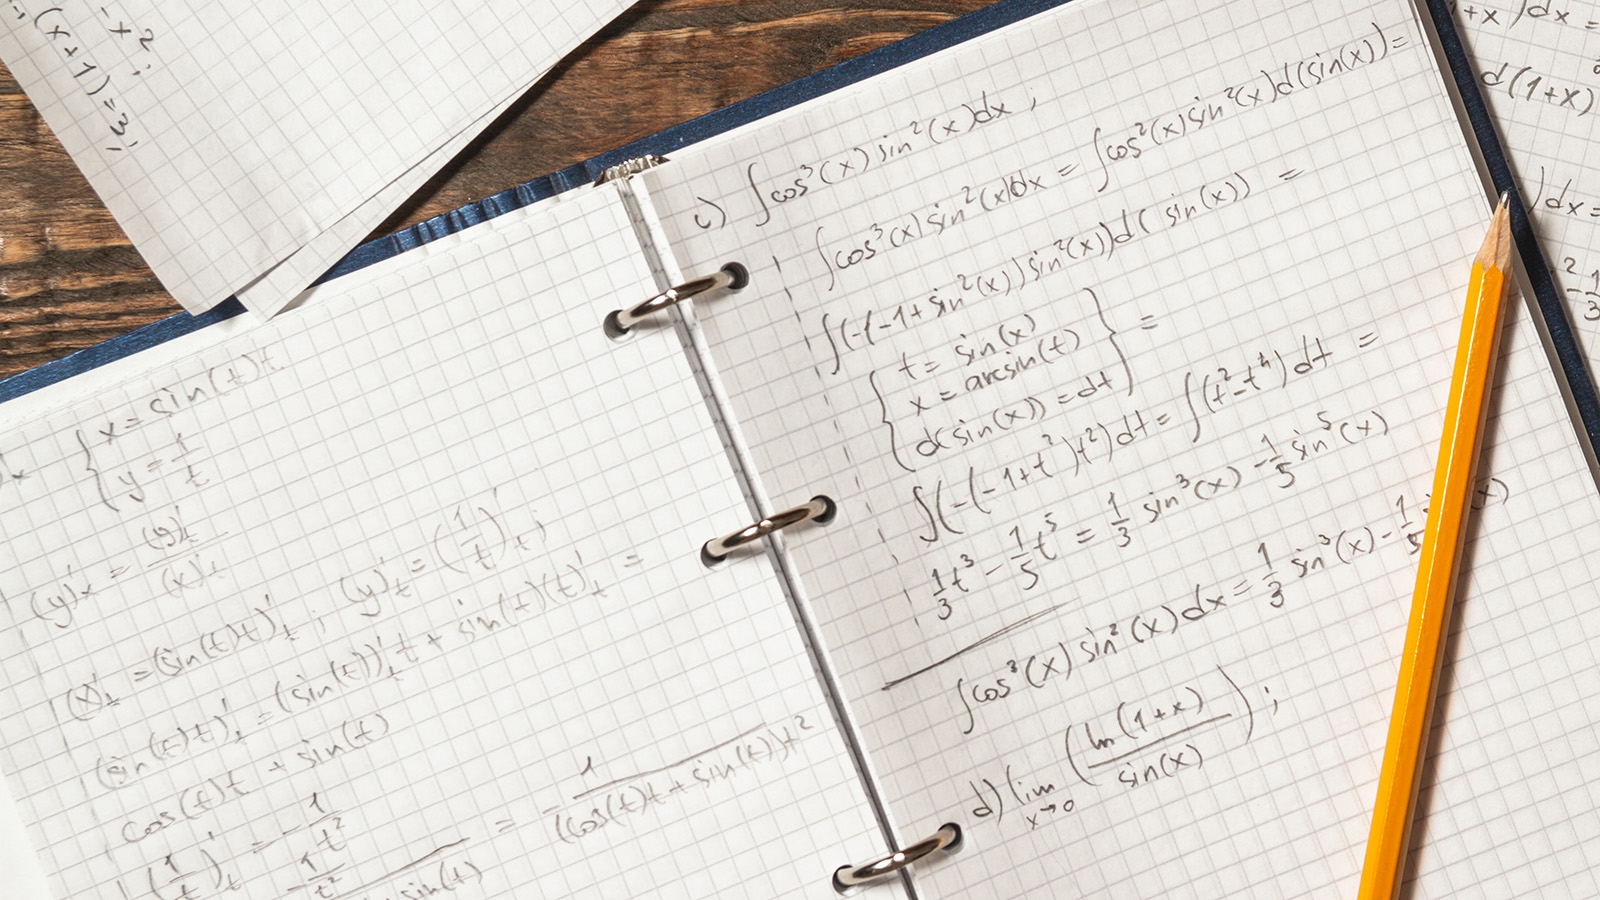 - x²;
(x+1)=3;
{ x = sin(t)t
y = 1/t
(y)'x = (y)'t / (x)'t
(x)'t = (sin(t)t)'t ; (y)'t = (1/t)'t ;
(sin(t)t)'t = (sin(t))'t t + sin(t)(t)'t =
cos(t)t + sin(t)
(1/t)'t = - 1/t²
-1/t² / sin(t) = - 1 / ((cos(t)t + sin(t))t²
c) ∫cos³(x) sin²(x)dx ;
∫cos³(x) sin²(x)dx = ∫cos²(x)sin²(x)d(sin(x)) =
∫(-(-1+sin²(x))sin²(x))d(sin(x)) =
{ t = sin(x)
x = arcsin(t)
d(sin(x)) = dt } =
∫(-(-1+t²)t²)dt = ∫(t²-t⁴)dt =
1/3 t³ - 1/5 t⁵ = 1/3 sin³(x) - 1/5 sin⁵(x)
∫cos³(x) sin²(x)dx = 1/3 sin³(x) - 1/5 (x)
d) lim x→0 (ln(1+x) / sin(x)) ;
1+x)dx =
d(1+x)
)dx =
2 - 1/3